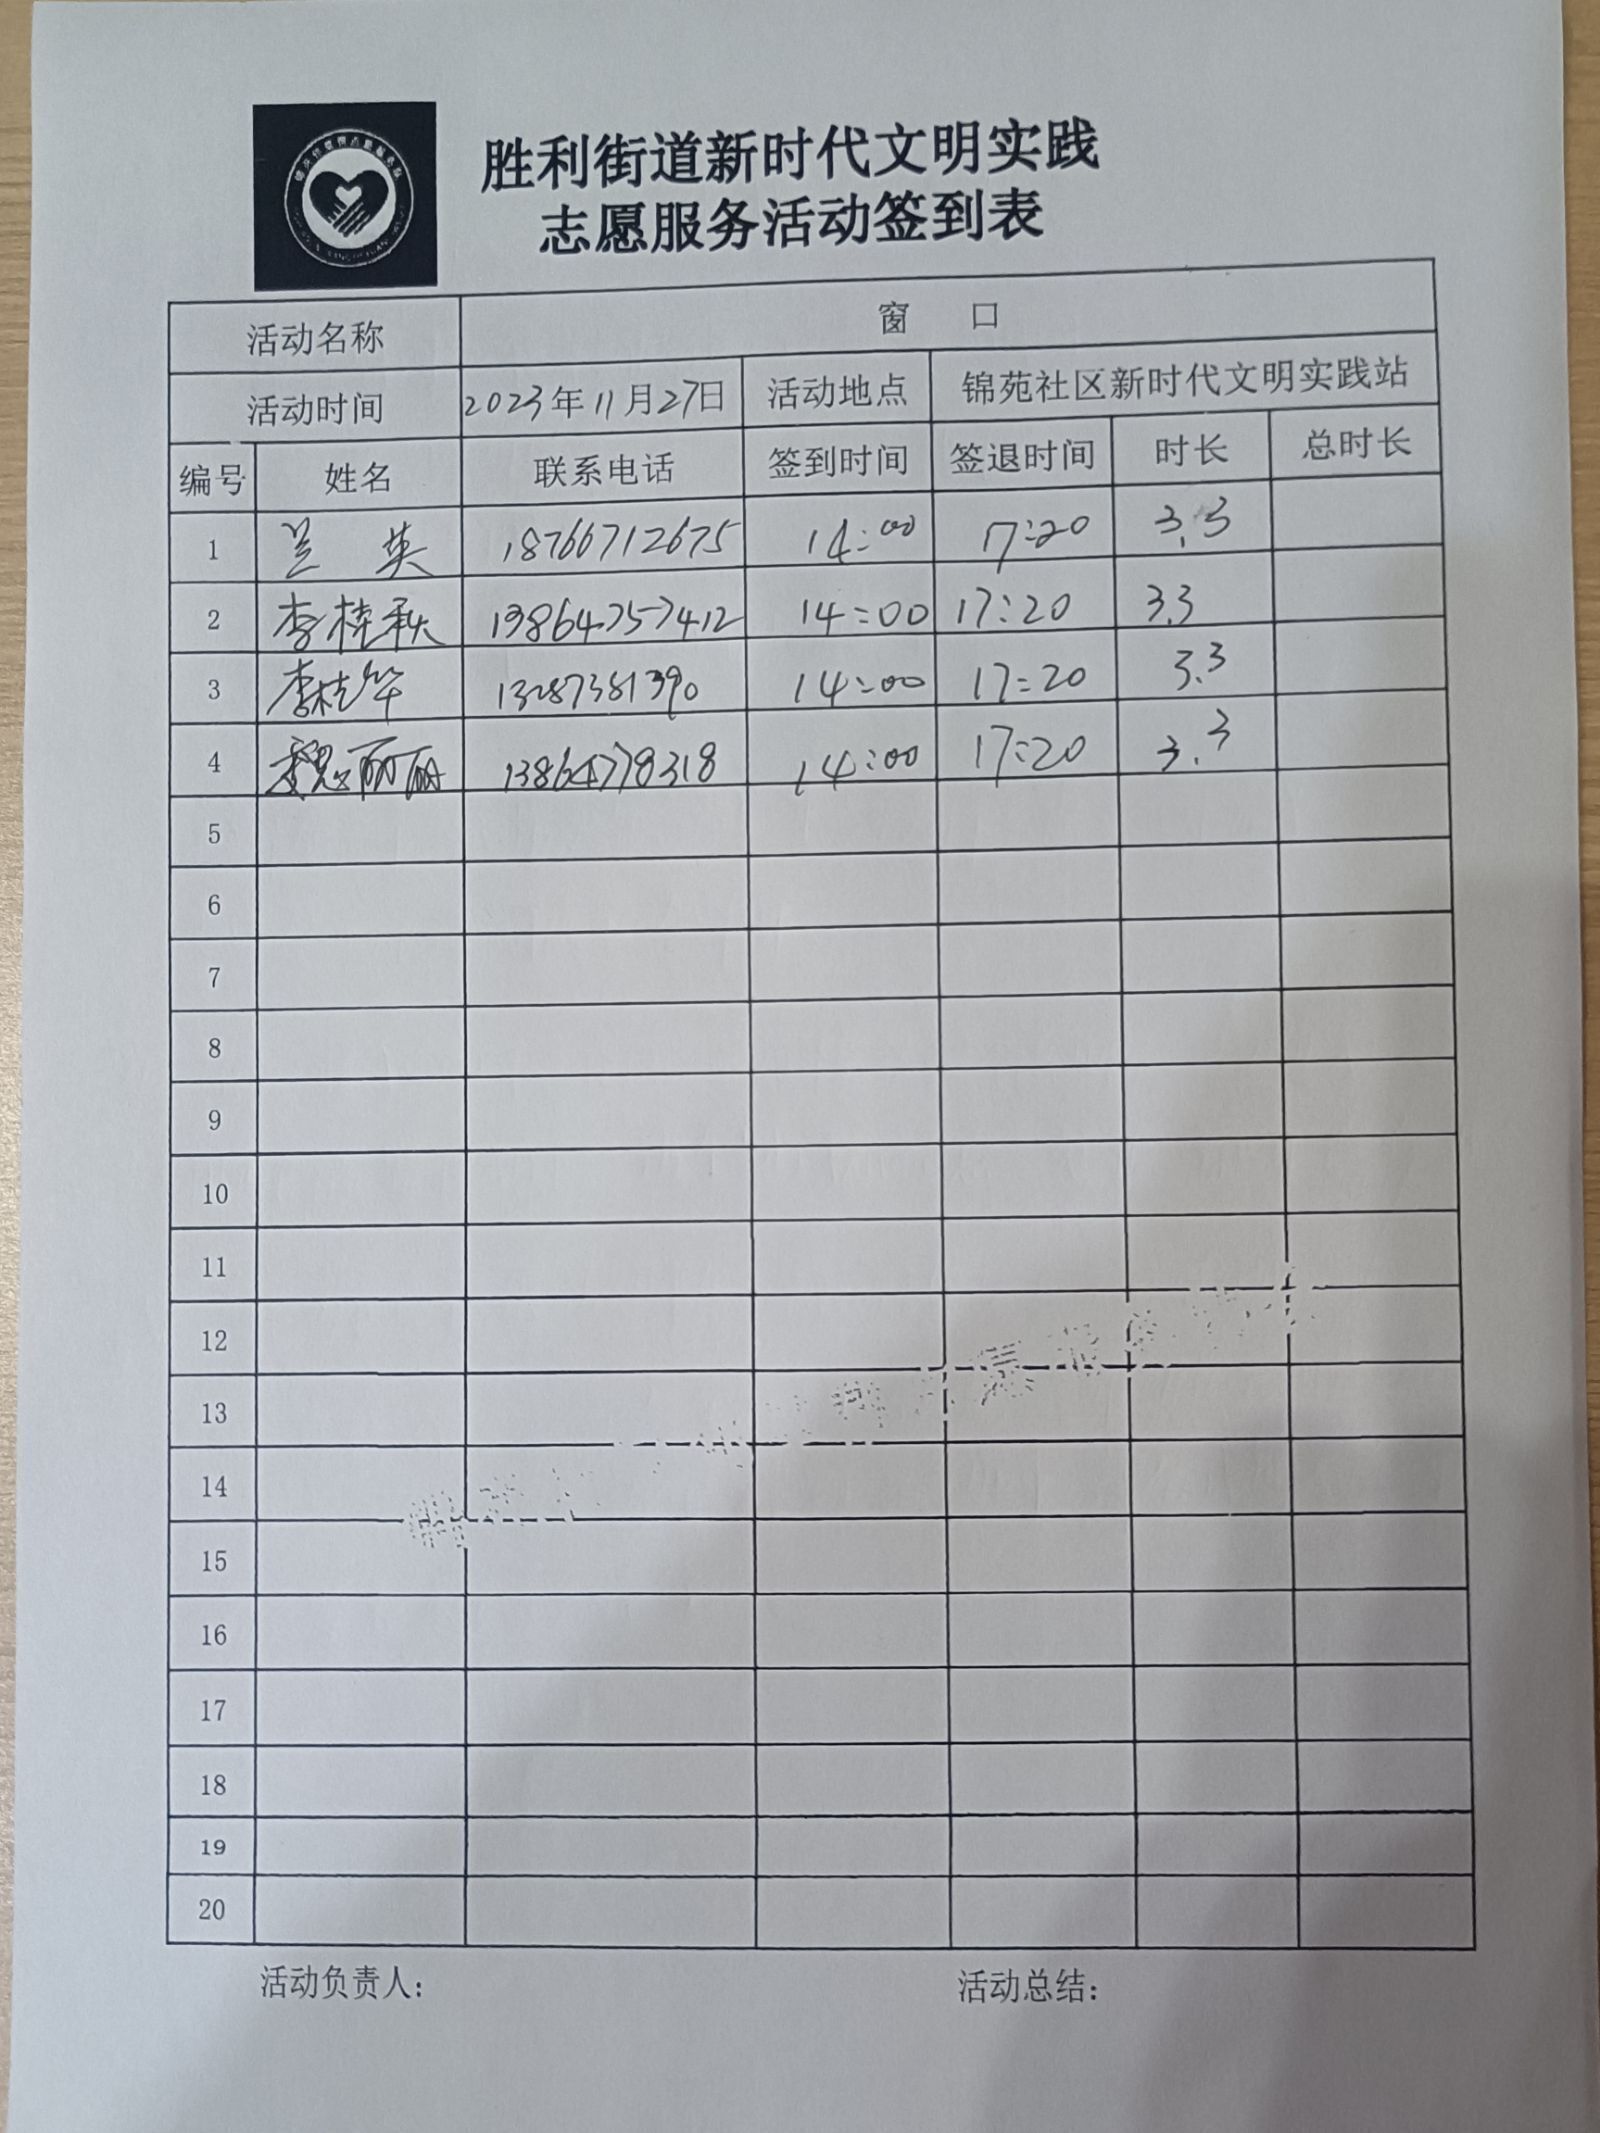 胜利街道新时代文明实践
志愿服务活动签到表
活动名称 窗 口
活动时间 2023年11月27日 活动地点 锦苑社区新时代文明实践站
编号 姓名 联系电话 签到时间 签退时间 时长 总时长
1 兰英 18766712675 14:00 17:20 3.3
2 李桂秋 13864757412 14:00 17:20 3.3
3 李桂华 13287381390 14:00 17:20 3.3
4 魏丽丽 13864778318 14:00 17:20 3.3
5
6
7
8
9
10
11
12
13
14
15
16
17
18
19
20
活动负责人: 活动总结: